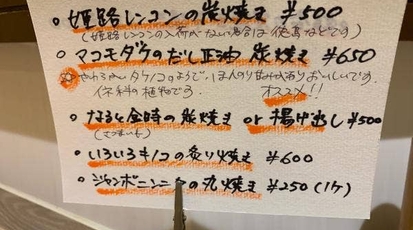 姫路レンコンの炭焼き ¥500
(姫路レンコンの入荷がない場合は徳島などです)
マコモダケのだし正油 炭焼き ¥650
やわらかいタケノコのようで、ほんのり甘みがありおいしいです。
イネ科の植物です。 オススメ!!
なると金時の炭焼き or 揚げ出し ¥500
(さつまいも)
いろいろキノコの炙り焼き ¥600
ジャンボニンニクの丸焼き ¥250(1ケ)